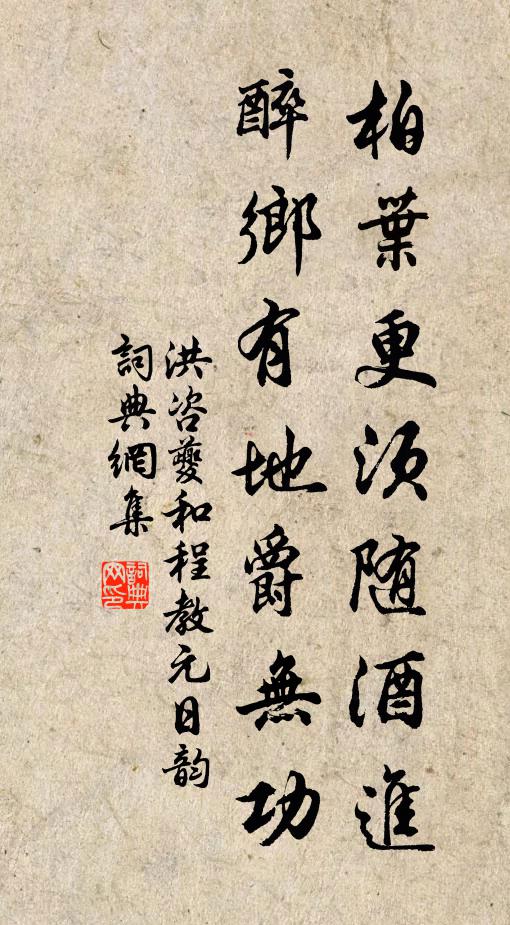 柏葉更須随酒進
醉鄉有地爵無功
洪咨夔和程教元日韵
詞典網集
詞典網印